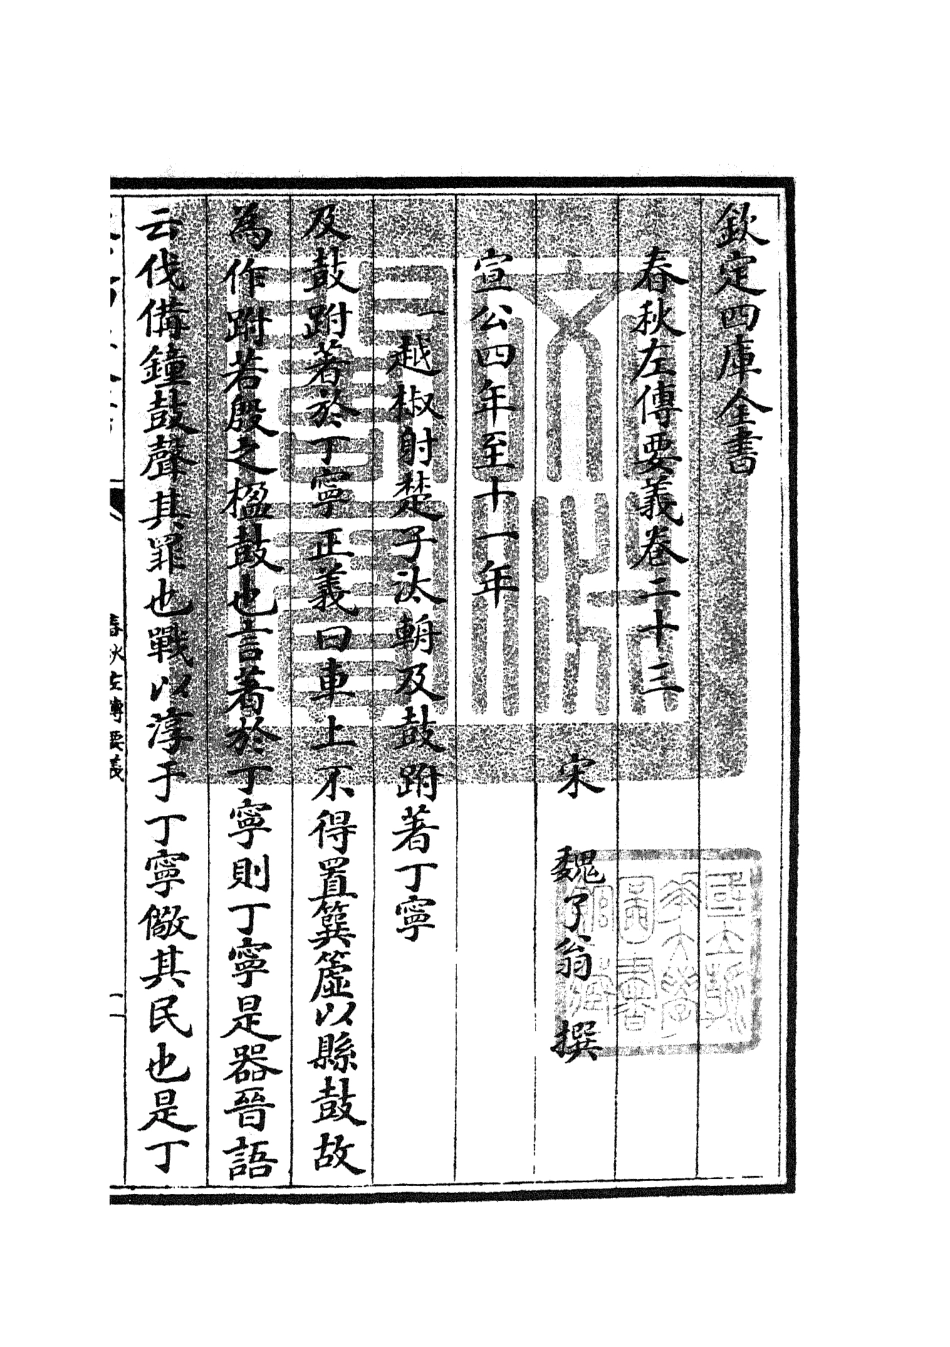 欽定四庫全書
春秋左傳要義卷二十三
宋 魏了翁 撰
宣公四年至十一年
一越椒射楚子汰輈及鼓跗著丁寧
及鼓跗著於丁寧正義曰車上不得置簨簴以縣鼓故
為作跗若殷之楹鼓也言著於丁寧則丁寧是器晉語
云伐備鐘鼓聲其罪也戰以淳于丁寧儆其民也是丁
春秋左傳要義
一